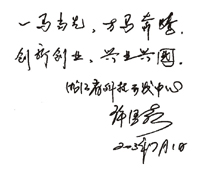 一马当先，万马奔腾．
创新创业，兴业兴国．
浙江省科技开发中心
2003年7月1日